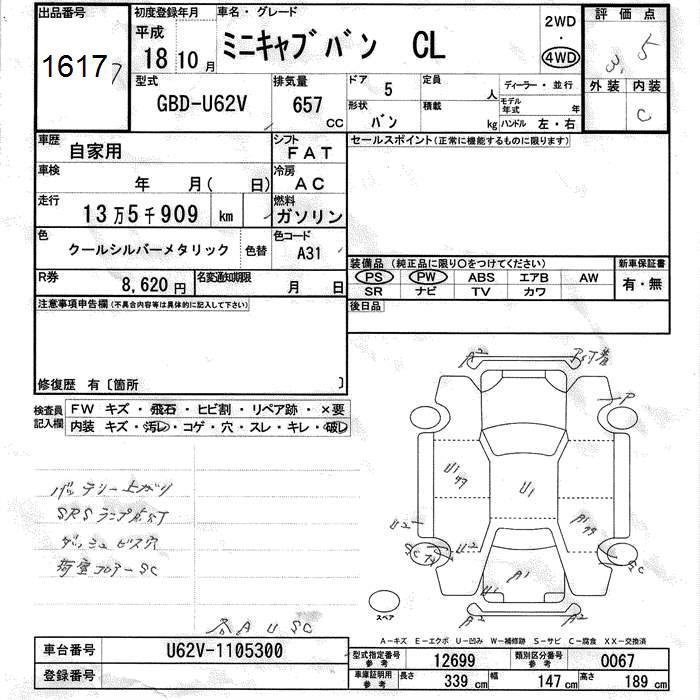 出品番号
16177
初度登録年月
平成
18 10 月
車名・グレード
ミニキャブバン CL
2WD
・
4WD
評価点
3.5
外装 内装
C
型式
GBD-U62V
排気量
657
cc
ドア
5
形状
バン
定員
人
積載
kg
ディーラー・並行
モデル
年式 年
ハンドル 左・右
車歴
自家用
シフト
FAT
車検
年 月( 日)
冷房
AC
走行
13万5千909 km
燃料
ガソリン
色
クールシルバーメタリック
色替
色コード
A31
R券
8,620 円
名変通知期限
月 日
セールスポイント(正常に機能するものに限ります)
装備品 (純正品に限り○をつけてください)
PS PW ABS エアB AW
SR ナビ TV カワ
新車保証書
有・無
後日品
注意事項申告欄(不具合内容等は具体的に記入して下さい)
修復歴 有〔箇所 〕
検査員
記入欄
FW キズ・飛石・ヒビ割・リペア跡・×要
内装 キズ・汚レ・コゲ・穴・スレ・キレ・破レ
バッテリー上がり
SRSランプ点灯
ダッシュビス穴
荷室フロアーSC
A U SC
A2
P
U1
U1
A1
U2
U2
SC
SC
A1
A2
A2
スペア
A-キズ E-エクボ U-凹み W-補修跡 S-サビ C-腐食 XX-交換済
車台番号
U62V-1105300
登録番号
型式指定番号
参考
12699
類別区分番号
参考
0067
車庫証明用
参考
長さ 339 cm
幅 147 cm
高さ 189 cm